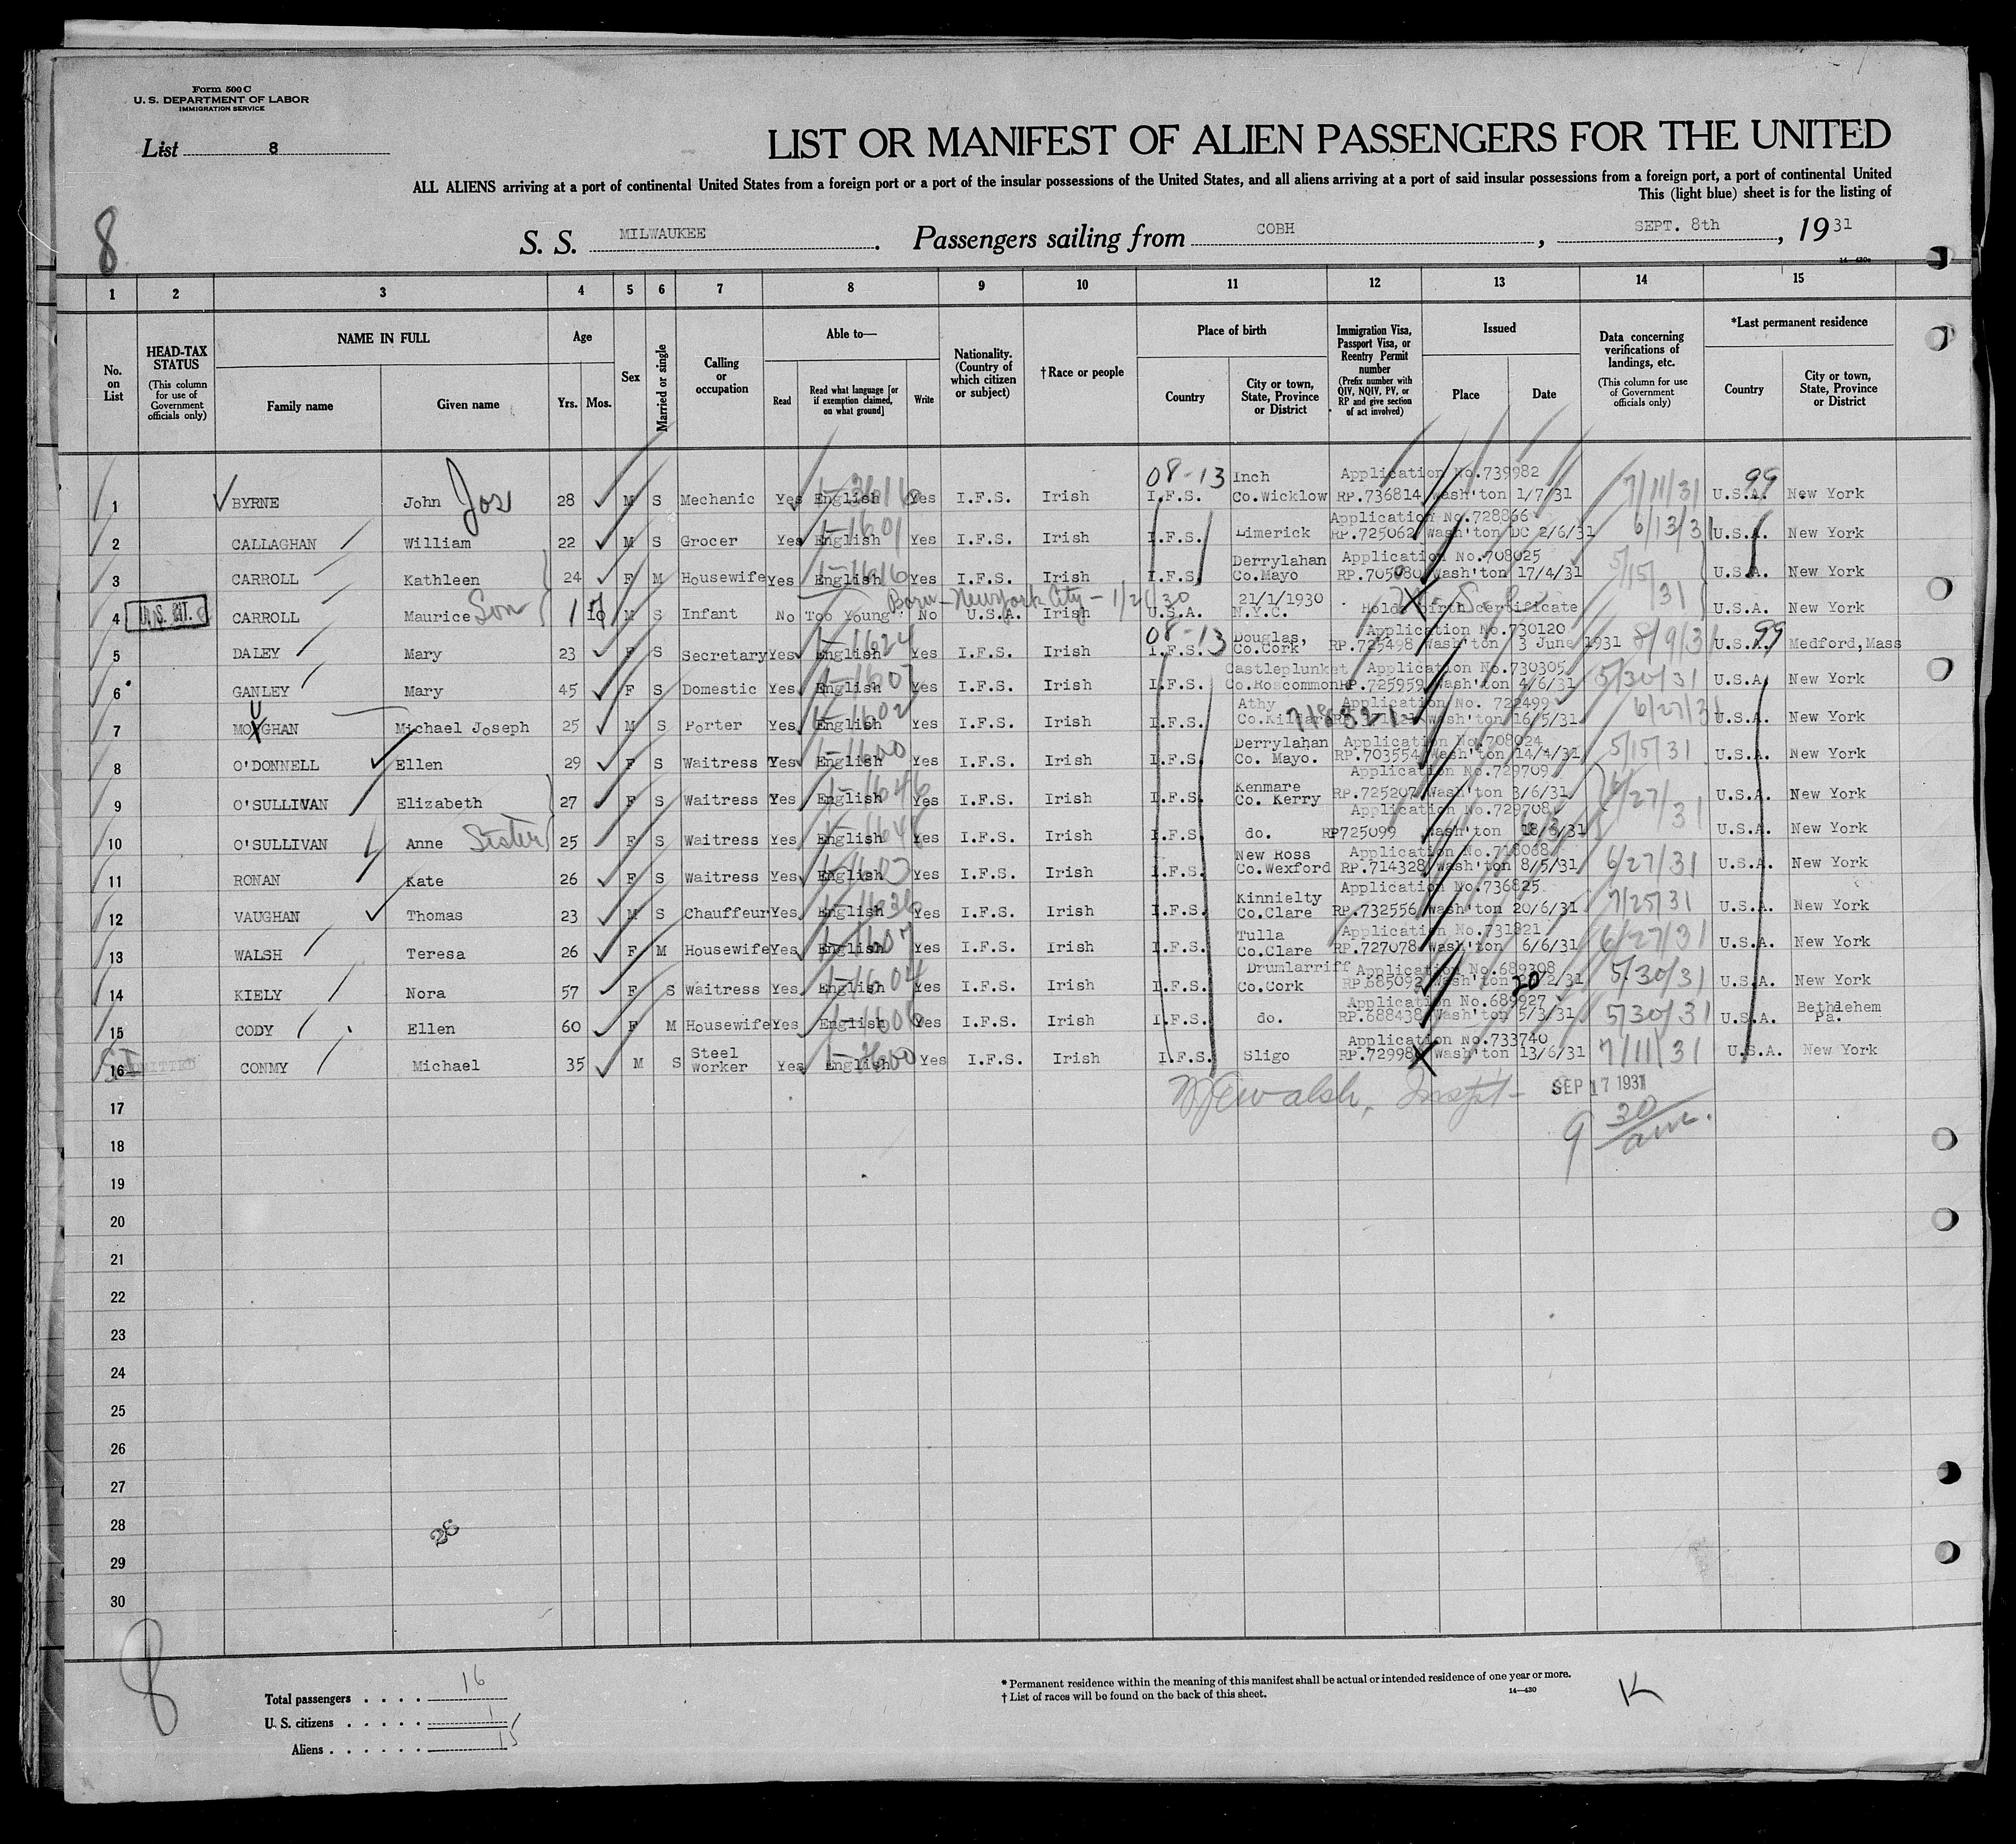 Form 500 C
U. S. DEPARTMENT OF LABOR
IMMIGRATION SERVICE
List 8
LIST OR MANIFEST OF ALIEN PASSENGERS FOR THE UNITED
ALL ALIENS arriving at a port of continental United States from a foreign port or a port of the insular possessions of the United States, and all aliens arriving at a port of said insular possessions from a foreign port, a port of continental United
This (light blue) sheet is for the listing of
8
S. S. MILWAUKEE. Passengers sailing from COBH, SEPT. 8th, 1931
14-430a
1 2 3 4 5 6 7 8 9 10 11 12 13 14 15
No. on List
HEAD-TAX STATUS
(This column for use of Government officials only)
NAME IN FULL
Family name
Given name
Age
Yrs. Mos.
Sex
Married or single
Calling or occupation
Able to—
Read
Read what language [or if exemption claimed, on what ground]
Write
Nationality. (Country of which citizen or subject)
†Race or people
Place of birth
Country
City or town, State, Province or District
Immigration Visa, Passport Visa, or Reentry Permit number
(Prefix number with QIV, NQIV, PV, or RP and give section of act involved)
Issued
Place
Date
Data concerning verifications of landings, etc.
(This column for use of Government officials only)
*Last permanent residence
Country
City or town, State, Province or District
08-13 Inch Application No.739982 99
1 BYRNE John Jos 28 M S Mechanic Yes English Yes I.F.S. Irish I.F.S. Co.Wicklow RP.736814 Wash'ton 1/7/31 7/11/31 U.S.A. New York
Application No.728866
2 CALLAGHAN William 22 M S Grocer Yes English Yes I.F.S. Irish I.F.S. Limerick RP.725062 Wash'ton DC 2/6/31 6/13/31 U.S.A. New York
Derrylahan Application No.708025
3 CARROLL Kathleen 24 F M Housewife Yes English Yes I.F.S. Irish I.F.S. Co.Mayo Wash'ton 17/4/31 5/15/31 U.S.A. New York
Born - New York City - 1/21/30 21/1/1930
4 U.S. CIT. CARROLL Maurice Son 1 M S Infant No Too Young No U.S.A. Irish U.S.A. N.Y.C. Holds birth certificate U.S.A. New York
08-13 Douglas, Application No.730120 99
5 DALEY Mary 23 F S Secretary Yes English Yes I.F.S. Irish I.F.S. Co.Cork RP.725498 Wash'ton 3 June 1931 8/9/31 U.S.A. Medford,Mass
Castleplunket Application No.730305
6 GANLEY Mary 45 F S Domestic Yes English Yes I.F.S. Irish I.F.S. Co.Roscommon RP.725959 Wash'ton 4/6/31 5/30/31 U.S.A. New York
Athy Application No. 722499
7 Michael Joseph 25 M S Porter Yes English Yes I.F.S. Irish I.F.S. Co.Kildare Wash'ton 16/5/31 6/27/31 U.S.A. New York
Derrylahan Application No.708024
8 O'DONNELL Ellen 29 F S Waitress Yes English Yes I.F.S. Irish I.F.S. Co. Mayo. RP.703554 Wash'ton 14/4/31 5/15/31 U.S.A. New York
Kenmare Application No.729709
9 O'SULLIVAN Elizabeth 27 F S Waitress Yes English Yes I.F.S. Irish I.F.S. Co. Kerry RP.725207 Wash'ton 3/6/31 6/27/31 U.S.A. New York
Application No.729708
10 O'SULLIVAN Anne Sister 25 F S Waitress Yes English Yes I.F.S. Irish I.F.S. do. RP725099 Wash'ton U.S.A. New York
New Ross Application No.718068
11 RONAN Kate 26 F S Waitress Yes English Yes I.F.S. Irish I.F.S. Co.Wexford RP.714328 Wash'ton 8/5/31 6/27/31 U.S.A. New York
Kinnielty Application No.736825
12 VAUGHAN Thomas 23 M S Chauffeur Yes English Yes I.F.S. Irish I.F.S. Co.Clare RP.732556 Wash'ton 20/6/31 7/25/31 U.S.A. New York
Tulla Application No.731821
13 WALSH Teresa 26 F M Housewife Yes English Yes I.F.S. Irish I.F.S. Co.Clare RP.727078 Wash'ton 6/6/31 6/27/31 U.S.A. New York
Drumlarriff Application No.689308
14 KIELY Nora 57 F S Waitress Yes English Yes I.F.S. Irish I.F.S. Co.Cork RP.685092 Wash'ton 20/2/31 5/30/31 U.S.A. New York
Application No.689927
15 CODY Ellen 60 F M Housewife Yes English Yes I.F.S. Irish I.F.S. do. RP.688438 Wash'ton 5/3/31 5/30/31 U.S.A. Bethlehem Pa.
Application No.733740
16 ADMITTED CONMY Michael 35 M S Steel worker Yes English Yes I.F.S. Irish I.F.S. Sligo Wash'ton 13/6/31 7/11/31 U.S.A. New York
Walsh, Inspt- SEP 17 1931
17
9 30/am.
18
19
20
21
22
23
24
25
26
27
28
29
30
8
Total passengers . . . . 16
U. S. citizens . . . . . 1
Aliens . . . . . . 15
* Permanent residence within the meaning of this manifest shall be actual or intended residence of one year or more.
† List of races will be found on the back of this sheet.
14-430
K